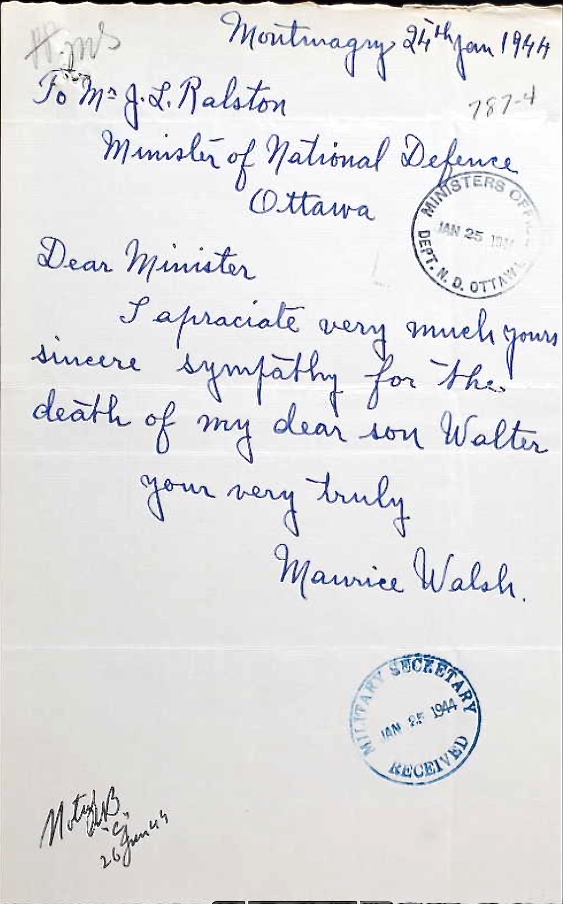 Montmagny 24th Jan 1944
To Mr J. L. Ralston
787-4
Minister of National Defence
Ottawa
MINISTERS OFF
JAN 25 19
DEPT. N. D. OTTAWA
Dear Minister
I apraciate very much yours
sincere sympathy for the
death of my dear son Walter
your very truly
Maurice Walsh.
MILITARY SECRETARY
JAN 25 1944
RECEIVED
26 Jan 44